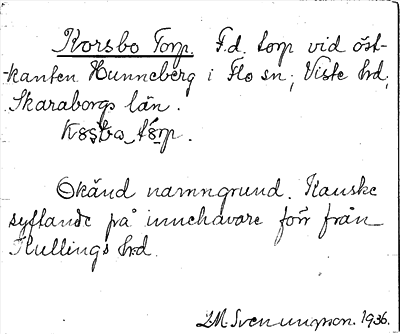 Korsbo Torp. F.d. torp vid öst-
kanten Hunneberg i Flo sn, Viste hd,
Skaraborgs län.
torp.
Okänd namngrund. Kanske
syftande på innehavare förr från
Kullings hd.
1936.